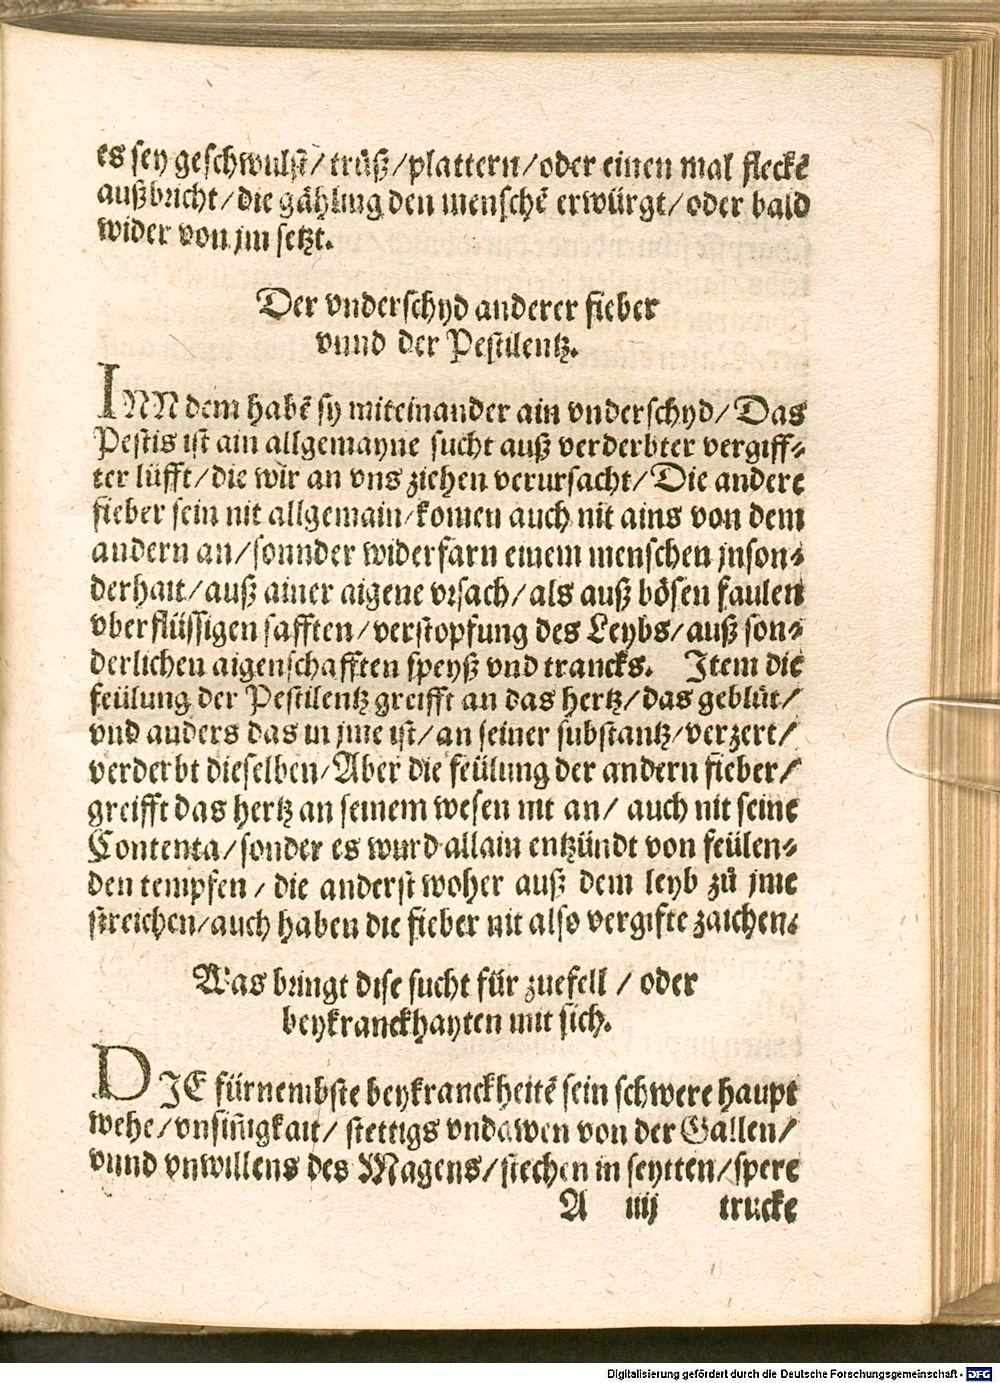 es sey geschwulst/trüß/plattern/oder einen mal fleckē
außbricht/die gähling den menschē erwürgt/oder bald
wider von jm setzt.
Der vnderschyd anderer fieber
vnnd der Pestilentz.
INN dem habē sy miteinander ain vnderschyd/Das
Pestis ist ain allgemayne sucht auß verderbter vergiff⸗
ter lüfft/die wir an vns ziehen verursacht/Die andere
fieber sein nit allgemain/komen auch nit ains von dem
andern an/sonnder widerfarn einem menschen jnson⸗
derhait/auß ainer aigene vrsach/als auß bösen faulen
vberflüssigen safften/verstopfung des Leybs/auß son⸗
derlichen aigenschafften speyß vnd trancks. Item die
feülung der Pestilentz greifft an das hertz/das geblüt/
vnd anders das in jme ist/an seiner substantz/verzert/
verderbt dieselben/Aber die feülung der andern fieber/
greifft das hertz an seinem wesen nit an/ auch nit seine
Contenta/sonder es wurd allain entzündt von feülen⸗
den tempfen/ die anderst woher auß dem leyb zů jme
streichen/auch haben die fieber nit also vergifte zaichen.
Was bringt dise sucht für zuefell / oder
beykranckhayten mit sich.
DIE fürnembste beykranckheitē sein schwere haupt
wehe/vnsiñigkait/ stettigs vndawen von der Gallen/
vnnd vnwillens des Magens/stechen in seytten/spere
A iij trucke
Digitalisierung gefördert durch die Deutsche Forschungsgemeinschaft - DFG